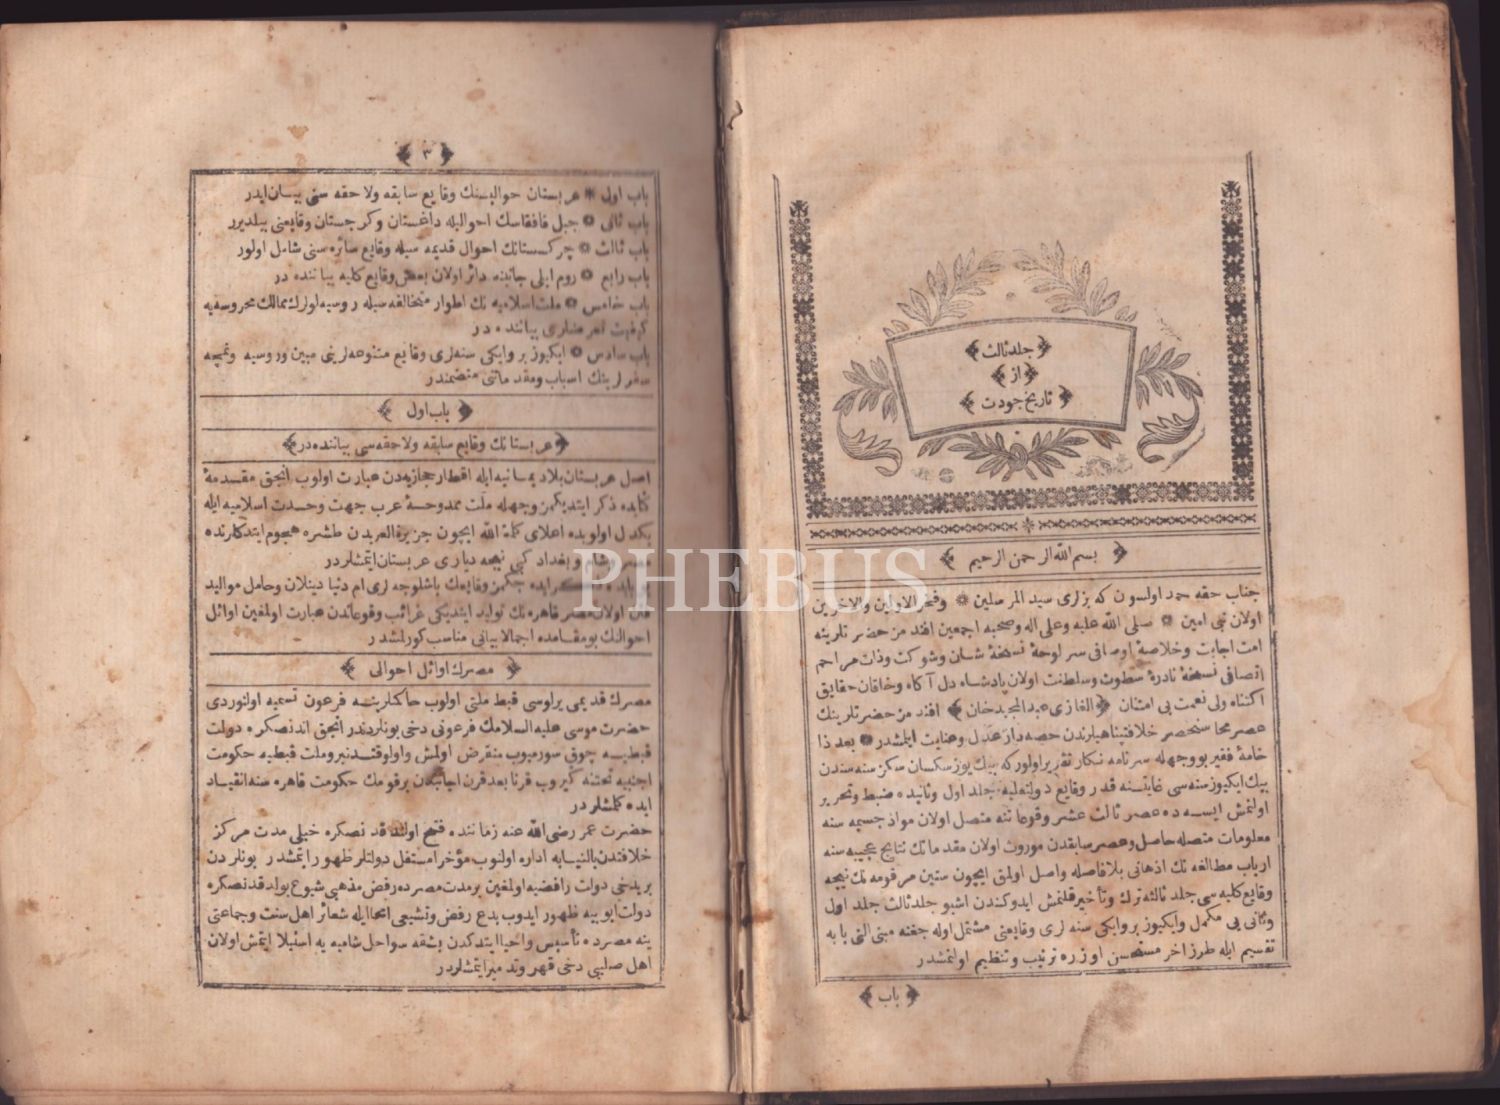 ﴿ جلد ثالث ﴾
﴿ از ﴾
﴿ تاریخ جودت ﴾
﴿ بسم الله الرحمن الرحیم ﴾
جناب حقه حمد اولسون که بزلری سید المرسلین ❁ وفخر الاولین والاخرین
اولان نبی امین ❁ صلی الله علیه وعلی اله وصحبه اجمعین افندمن حضرتلرینه
امت اجابت وخلاصهٔ اوصافی سر لوحهٔ نسخهٔ شان وشوکت وذات مراحم
اتصافی نسخهٔ نادرهٔ سطوت وسلطنت اولان پادشاه دل آکاه وخاقان حقایق
اکتناه ولی نعمت بی امتنان ﴿ الغازی عبدالمجید خان ﴾ افندمن حضرتلرینك
عصر محاسنحصر خلافتپناهیلرندن حصه دار عدل وعنایت ایلمشدر ❁ بعد ذا
خامهٔ فقیر بو وجهله سرنامه نکار تقریر اولور که بیك یوز سکسان سکز سنه سندن
بیك ایکیوز سنه سی غایتنه قدر وقایع دولتعلیه جلد اول وثانیده ضبط وتحریر
اولنمش ایسه ده عصر ثالث عشر وقوعاتنه متصل اولان مواد جسیمه سنه
معلومات متصله حاصل وعصر سابقدن موروث اولان مقدماتك نتایج عجیبه سنه
ارباب مطالعه نك اذهانی بلافاصله واصل اولمق ایچون ستین مرقومه نك نیجه
وقایع کلیه سی جلد ثالثه ترك وتأخیر قلنمش ایدوکندن اشبو جلد ثالث جلد اول
وثانی یی مکمل وایکیوز بر وایکی سنه لری وقایعنی مشتمل اوله جغنه مبنی التی بابه
تقسیم ایله طرز اخر مستحسن اوزره ترتیب وتنظیم اولنمشدر
﴿ باب ﴾
﴿ ٣ ﴾
باب اول ❁ عربستان حوالیسنك وقایع سابقه ولاحقه سنی بیان ایدر
باب ثانی ❁ جبل قافقاسك احوالیله داغستان وکرجستان وقایعنی بیلدیرر
باب ثالث ❁ چرکسستانك احوال قدیمه سیله وقایع سائره سنی شامل اولور
باب رابع ❁ روم ایلی جانبنه دائر اولان بعض وقایع کلیه بیاننده در
باب خامس ❁ ملت اسلامیه نك اطوار متخالفه سیله روسیه لولرك ممالك محروسه یه
کیفیت تعرضلری بیاننده در
باب سادس ❁ ایکیوز بر وایکی سنه لری وقایع متنوعه لرینی مبین وروسیه ونمچه
سفرلرینك اسباب ومقدماتنی متضمندر
﴿ باب اول ﴾
﴿ عربستانك وقایع سابقه ولاحقه سی بیاننده در ﴾
اصل عربستان بلاد یمانیه ایله اقطار حجازیه دن عبارت اولوب انجق مقدمهٔ
کتابده ذکر ایتدیکمز وجهله ملت ممدوحهٔ عرب جهت وحدت اسلامیه ایله
یکدل اولوبده اعلای کلمة الله ایچون جزیرة العربدن طشره هجوم ایتدکلرنده
مصر وشام وبغداد کبی نیجه دیاری عربستان ایتمشلردر
وقایعك باشلوجه لری ام دنیا دینلان وحامل موالید
فتن اولان مصر قاهره نك تولید ایتدیکی غرائب وقوعاتدن عبارت اولمغین اوائل
احوالنك بومقامده اجمالا بیانی مناسب کورلمشدر
﴿ مصرك اوائل احوالی ﴾
مصرك قدیمی یرلوسی قبط ملتی اولوب حاکملرینه فرعون تسمیه اولنوردی
حضرت موسی علیه السلامك فرعونی دخی بونلردندر انجق اندنصکره دولت
قبطیه چوق سورمیوب منقرض اولمش واولوقتدنبرو ملت قبطیه حکومت
اجنبیه تحتنه کیروب قرنا بعد قرن اجانبدن برقومك حکومت قاهره سنه انقیاد
ایده کلمشلردر
حضرت عمر رضی الله عنه زماننده فتح اولندقدنصکره خیلی مدت مرکز
خلافتدن بالنیابه اداره اولنوب مؤخرا مستقل دولتلر ظهور ایتمشدر بونلردن
بریدخی دولت رافضیه اولمغین برمدت مصرده رفض مذهبی شیوع بولدقدنصکره
دولت ایوبیه ظهور ایدوب بدع رفض وتشیعی امحا ایله شعائر اهل سنت وجماعتی
ینه مصرده تأسیس واحیا ایتدکدن بشقه سواحل شامیه یه استیلا ایتمش اولان
اهل صلیبی دخی قهر وتدمیر ایتمشلردر
PHEBUS